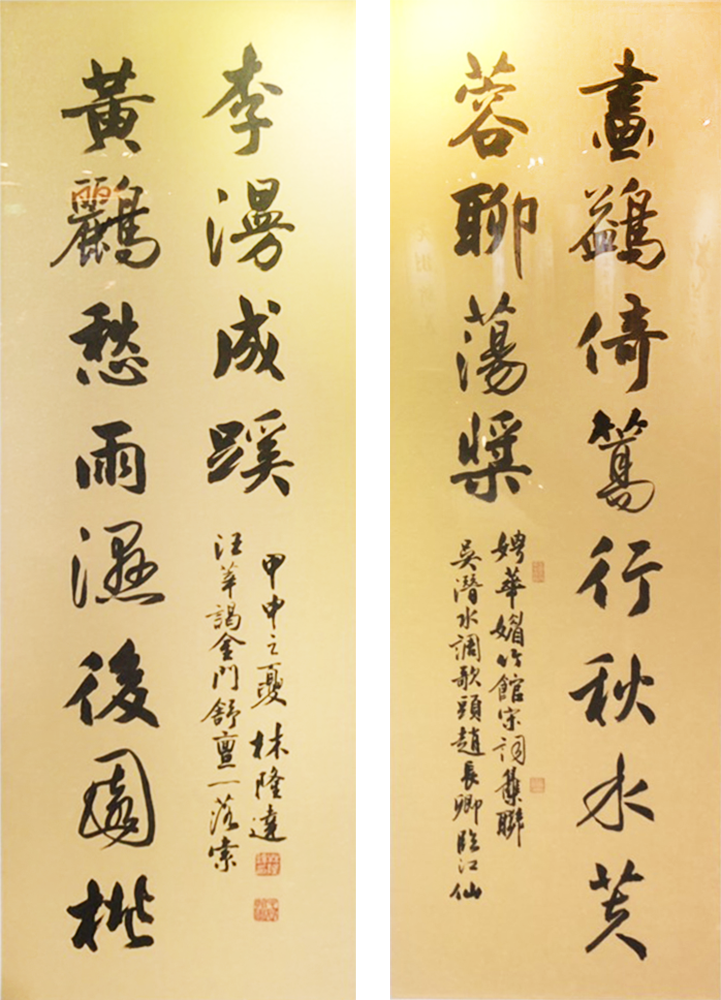 畫鷁倚篙行秋水芙
蓉聊蕩槳
娉華媚竹館宋詞集聯
吳潛水調歌頭趙長卿臨江仙
黃鸝愁雨濕後園桃
李漫成蹊
汪莘謁金門舒亶一落索
甲申之夏林隆達